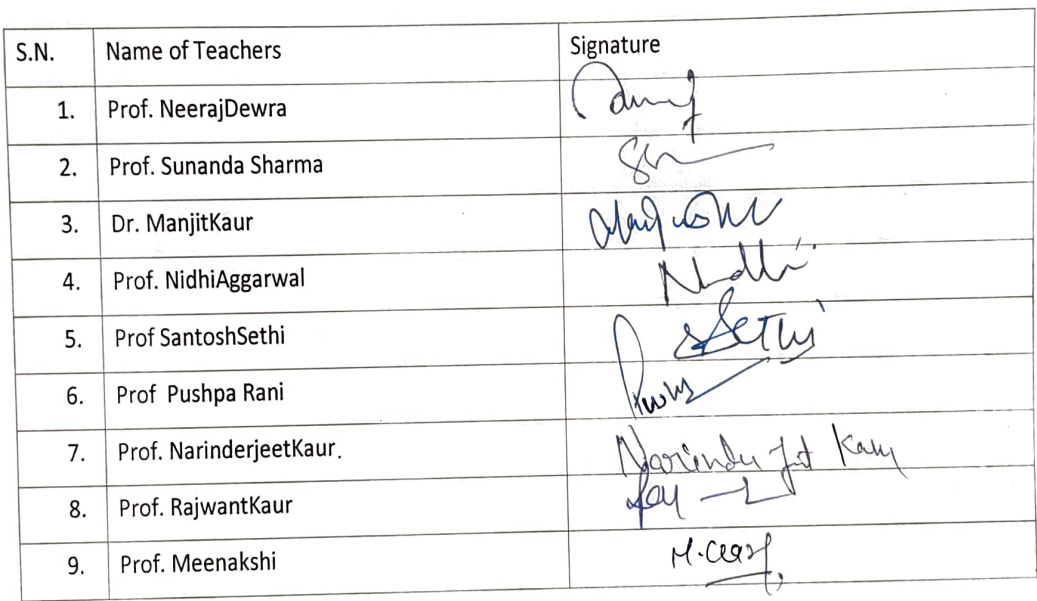 S.N. Name of Teachers Signature
1. Prof. NeerajDewra
2. Prof. Sunanda Sharma
3. Dr. ManjitKaur
4. Prof. NidhiAggarwal Nidhi
5. Prof SantoshSethi SSETHI
6. Prof Pushpa Rani
7. Prof. NarinderjeetKaur. Narinder jit Kaur
8. Prof. RajwantKaur
9. Prof. Meenakshi